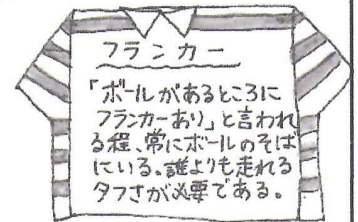 フランカー
「ボールがあるところに
フランカーあり」と言われ
る程、常にボールのそば
にいる。誰よりも走れる
タフさが必要である。